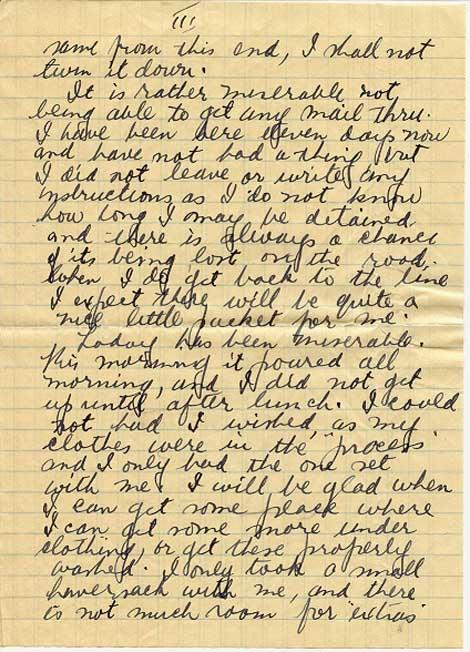 III
same from this end, I shall not
turn it down.
It is rather miserable not
being able to get any mail thru.
I have been here eleven days now
and have not had a thing but
I did not leave or write any
instructions as I do not know
how long I may be detained
and there is always a chance
of its being lost on the road.
When I do get back to the line
I expect there will be quite a
nice little packet for me.
Today has been miserable.
This morning it poured all
morning, and I did not get
up until after lunch. I could
not had I wished, as my
clothes were in the "process"
and I only had the one set
with me. I will be glad when
I can get some place where
I can get some more under
clothing, or get these properly
washed. I only took a small
haversack with me, and there
is not much room for "extras"